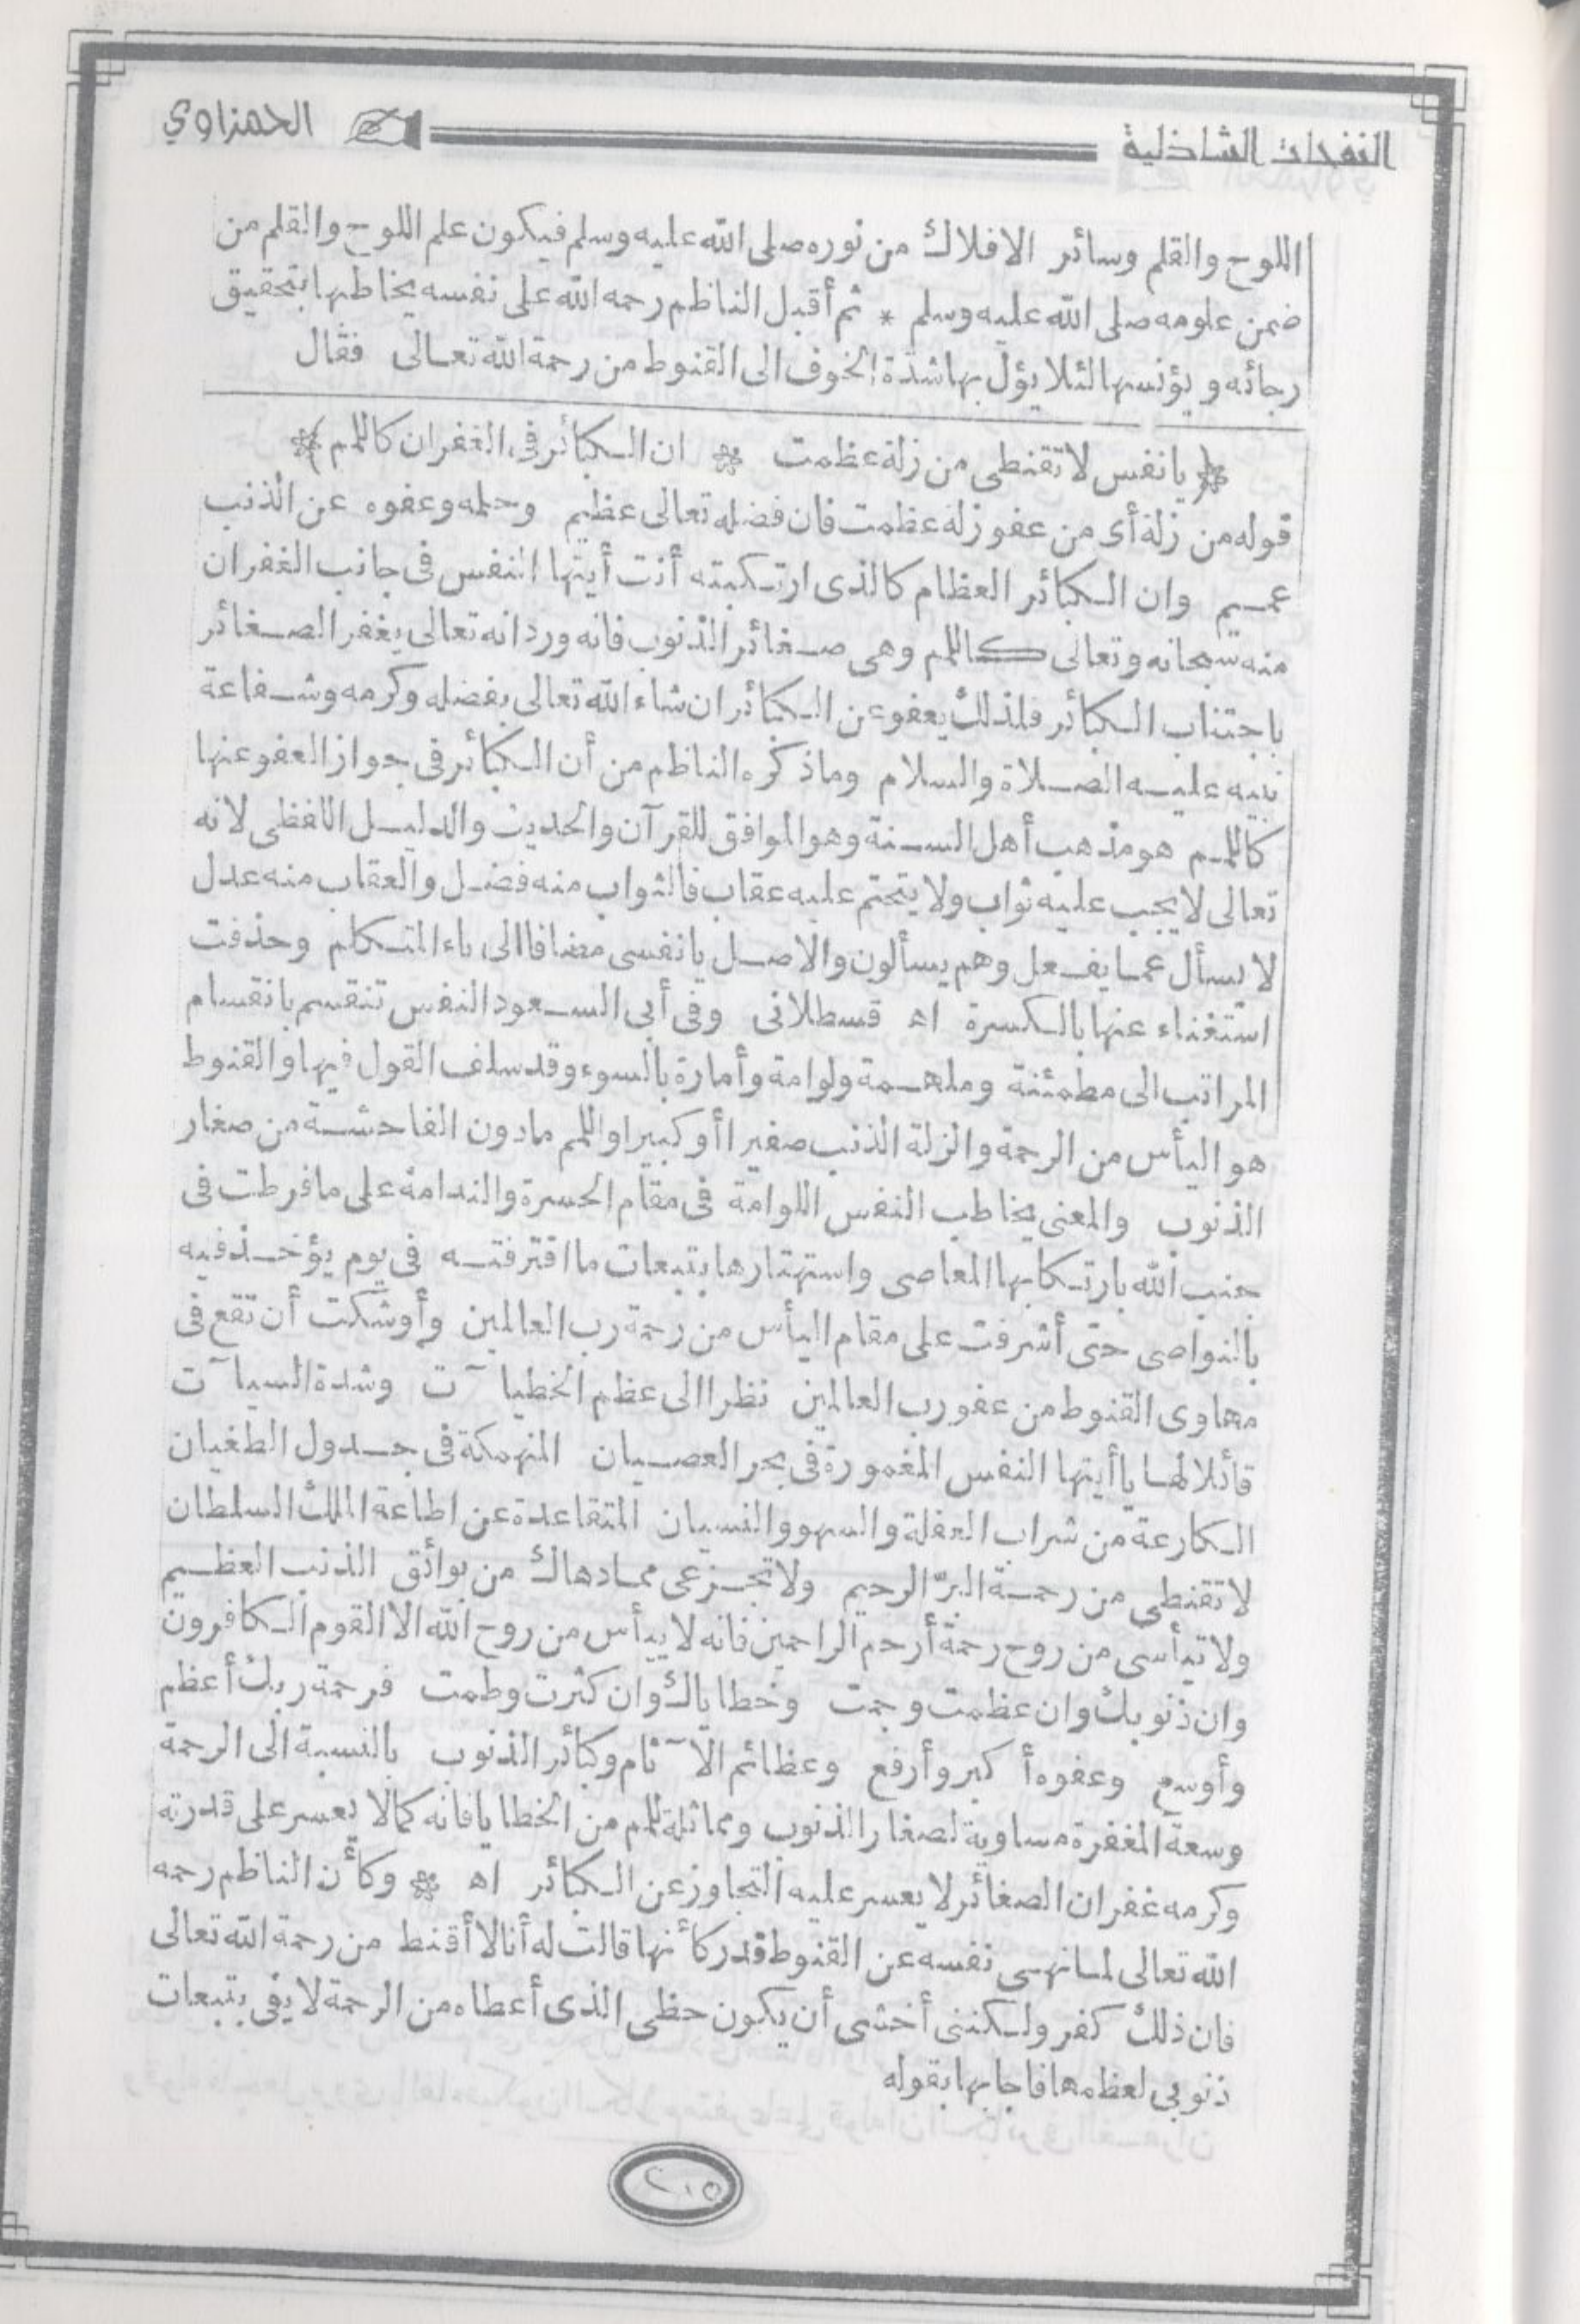 النفحات الشاذلية الحمزاوي
اللوح والقلم وسائر الافلاك من نوره صلى الله عليه وسلم فيكون علم اللوح والقلم من
ضمن علومه صلى الله عليه وسلم * ثم أقبل الناظم رحمه الله على نفسه يخاطبها بتحقيق
رجائه ويؤنسها لئلا يؤل بها شدة الخوف الى القنوط من رحمة الله تعالى فقال
﴿يا نفس لا تقنطى من زلة عظمت * ان الكبائر فى الغفران كاللمم﴾
قوله من زلة أى من عفو زلة عظمت فان فضله تعالى عظيم وحلمه وعفوه عن الذنب
عميم وان الكبائر العظام كالذى ارتكبته أنت أيتها النفس فى جانب الغفران
منه سبحانه وتعالى كاللمم وهى صغائر الذنوب فانه ورد انه تعالى يغفر الصغائر
باجتناب الكبائر فلذلك يعفو عن الكبائر ان شاء الله تعالى بفضله وكرمه وشفاعة
نبيه عليه الصلاة والسلام وما ذكره الناظم من أن الكبائر فى جواز العفو عنها
كاللمم هو مذهب أهل السنة وهو الموافق للقرآن والحديث والدليل اللفظى لانه
تعالى لا يجب عليه ثواب ولا يتحتم عليه عقاب فالثواب منه فضل والعقاب منه عدل
لا يسأل عما يفعل وهم يسألون والاصل يا نفسى مضافا الى ياء المتكلم وحذفت
استغناء عنها بالكسرة اه قسطلانى وفى أبى السعود النفس تنقسم بانقسام
المراتب الى مطمئنة وملهمة ولوامة وأمارة بالسوء وقد سلف القول فيها والقنوط
هو اليأس من الرحمة والزلة الذنب صغيرا أو كبيرا واللمم مادون الفاحشة من صغار
الذنوب والمعنى يخاطب النفس اللوامة فى مقام الحسرة والندامة على ما فرطت فى
جنب الله بارتكابها المعاصى واستهتارها بتبعات ما اقترفته فى يوم يؤخذ فيه
بالنواصى حتى أشرفت على مقام اليأس من رحمة رب العالمين وأوشكت أن تقع فى
مهاوى القنوط من عفو رب العالمين نظرا الى عظم الخطيآت وشدة السيآت
قائلا لها يا أيتها النفس المغمورة فى بحر العصيان المنهمكة فى جدول الطغيان
الكارعة من شراب الغفلة والسهو والنسيان المتقاعدة عن اطاعة الملك السلطان
لا تقنطى من رحمة البرّ الرحيم ولا تجزعى مما دهاك من بوائق الذنب العظيم
ولا تيأسى من روح رحمة أرحم الراحمين فانه لا ييأس من روح الله الا القوم الكافرون
وان ذنوبك وان عظمت وجمت وخطاياك وان كثرت وطمت فرحمة ربك أعظم
وأوسع وعفوه أكبر وأرفع وعظائم الآثام وكبائر الذنوب بالنسبة الى الرحمة
وسعة المغفرة مساوية لصغار الذنوب ومماثلة للمم من الخطايا فانه كما لا يعسر على قدرته
وكرمه غفران الصغائر لا يعسر عليه التجاوز عن الكبائر اه * وكأن الناظم رحمه
الله تعالى لما نهى نفسه عن القنوط قدر كأنها قالت له أنا لا أقنط من رحمة الله تعالى
فان ذلك كفر ولكننى أخشى أن يكون حظى الذى أعطاه من الرحمة لا يفى بتبعات
ذنوبى لعظمها فاجابها بقوله
٢٠٥